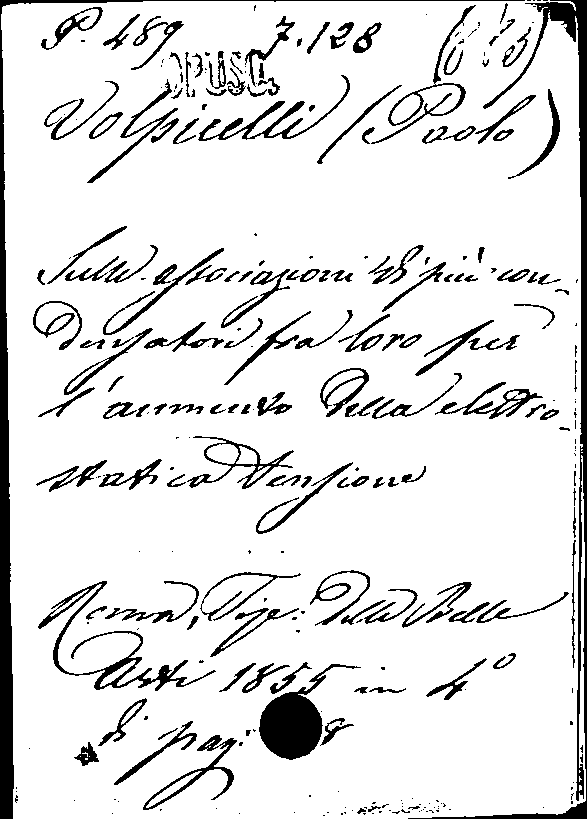 P. 489 7.128
OPUSC.
Volpicelli (Paolo)
Sulle associazioni di più con-
densatori fra loro per
l'aumento della elettro-
statica tensione
Roma, Tip: delle Belle
Arti 1855 in 4°
di pag: 8